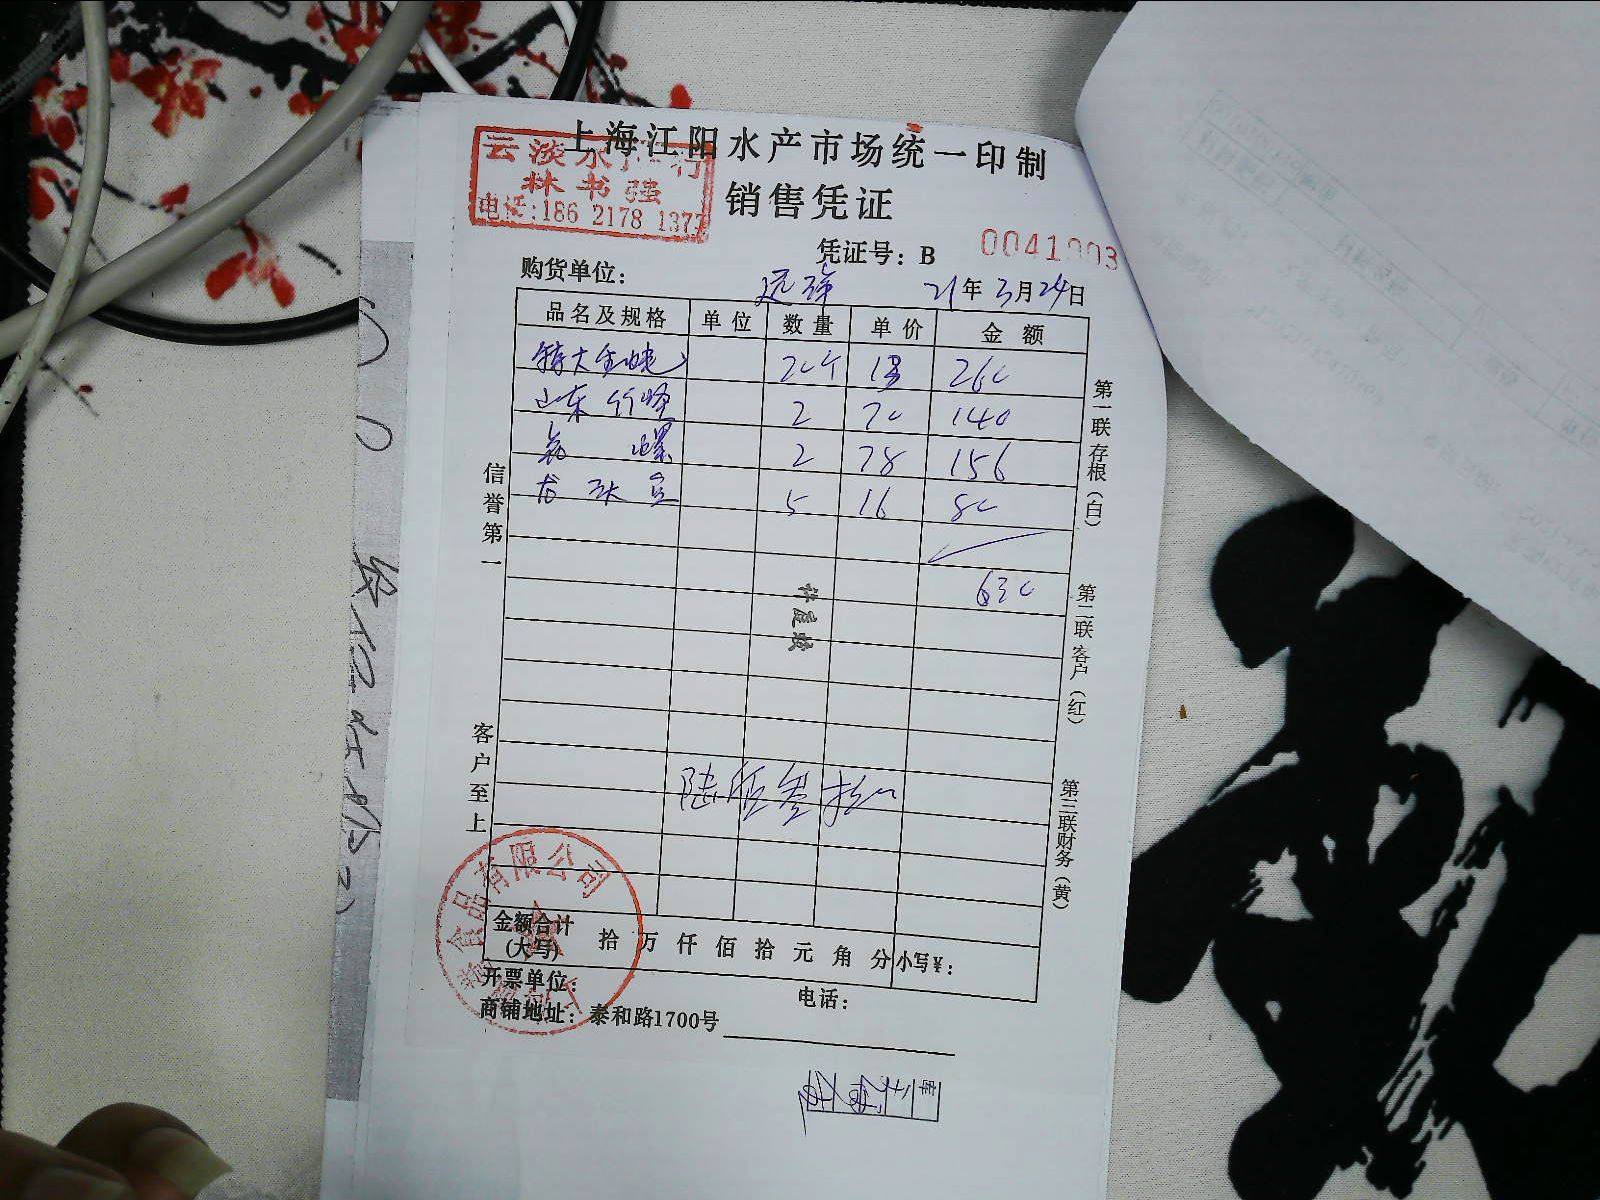 上海江阳水产市场统一印制
云淡水产行
林书强
电话:186 2178 1377
销售凭证
凭证号：B 0041003
购货单位： 远洋 21年3月24日
品名及规格 单位 数量 单价 金额
特大生蚝 20个 13 260
山东竹蛏 2 70 140
花螺 2 78 156
龙珠 5 16 80
630
许庭妹
陆佰叁拾
信誉第一
客户至上
第一联存根（白）
第二联客户（红）
第三联财务（黄）
食品有限公司
金额合计（大写） 拾万仟佰拾元角分 小写￥：
开票单位： 电话：
商铺地址：泰和路1700号